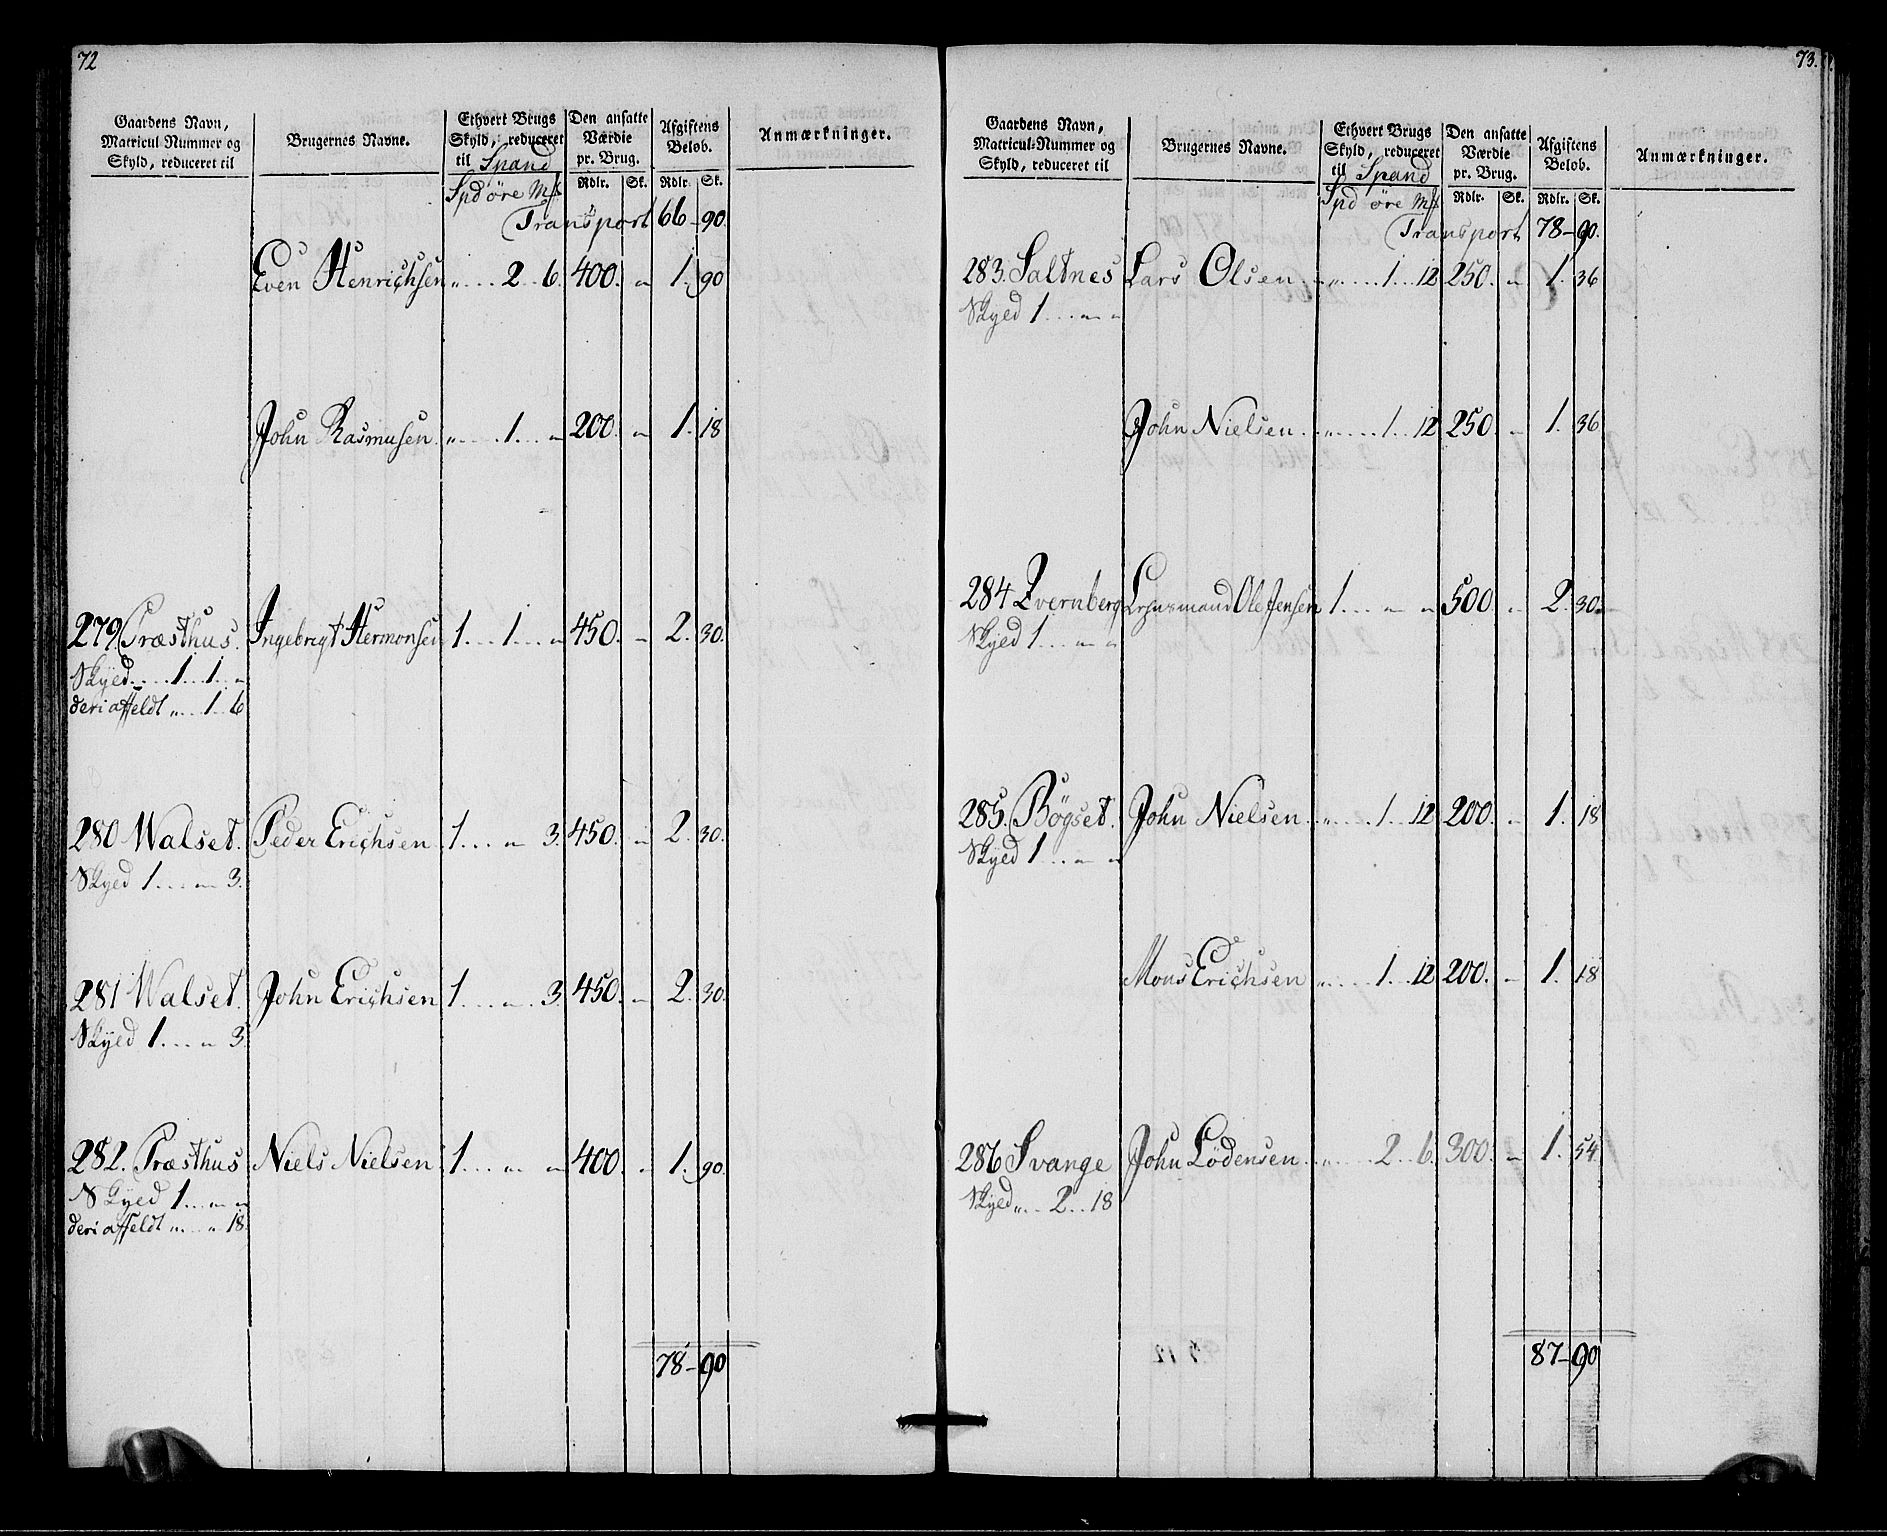 72
Gaardens Navn, Matricul-Nummer og Skyld, reduceret til
Brugernes Navne.
Ethvert Brugs Skyld, reduceret til Spand
Den ansatte Værdie pr. Brug.
Afgiftens Beløb.
Anmærkninger.
Spd öre Mk
Rdlr. Sk. Rdlr. Sk.
Transport 66 – 90.
Even Henrichsen „ .... 2 .. 6. 400. „ 1. 90
John Rasmusen. „ .... 1 ... „ 200. „ 1. 18
279. Præsthus. Ingebrigt Hermonsen 1 ... 1 ... „ 450. „ 2. 30.
Skyed .... 1 .. 1 .. „
deri affeldt „ ... 1 .. 6
280 Walset. Peder Erichsen. 1 ... „ 3. 450. „ 2. 30.
Skyed 1 ... „ 3.
281 Walset. John Erichsen 1 ... „ .. 3. 450. „ 2. 30.
Skyed 1 ... „ 3
282. Præsthus Niels Nielsen 1 ... „ „ 400. „ 1. 90.
Skyed 1 ... „ „
deri affeldt „ ... „ 18
78 – 90
73.
Gaardens Navn, Matricul-Nummer og Skyld, reduceret til
Brugernes Navne.
Ethvert Brugs Skyld, reduceret til Spand
Den ansatte Værdie pr. Brug.
Afgiftens Beløb.
Anmærkninger.
Spd öre Mk
Rdlr. Sk. Rdlr. Sk.
Transport 78 – 90.
283. Saltnes Lars Olsen „ .... 1 .. 12 250. „ 1. 36
Skyed 1 ... „ „
John Nielsen „ ..... 1 .. 12 250. „ 1. 36
284 Qvernberg Lehnsmand Ole Jensen 1 ... „ „ 500. „ 2. 30.
Skyed 1 ... „ „
285. Bögset. John Nielsen „ .... 1 .. 12 200. „ 1. 18
Skyed 1 ... „ „
Mons Erichsen „ .... 1 .. 12 200. „ 1. 18
286 Svange John Lödensen „ .... 2 .. 6. 300. „ 1. 54
Skyed „ .. 2 .. 18
87 – 90